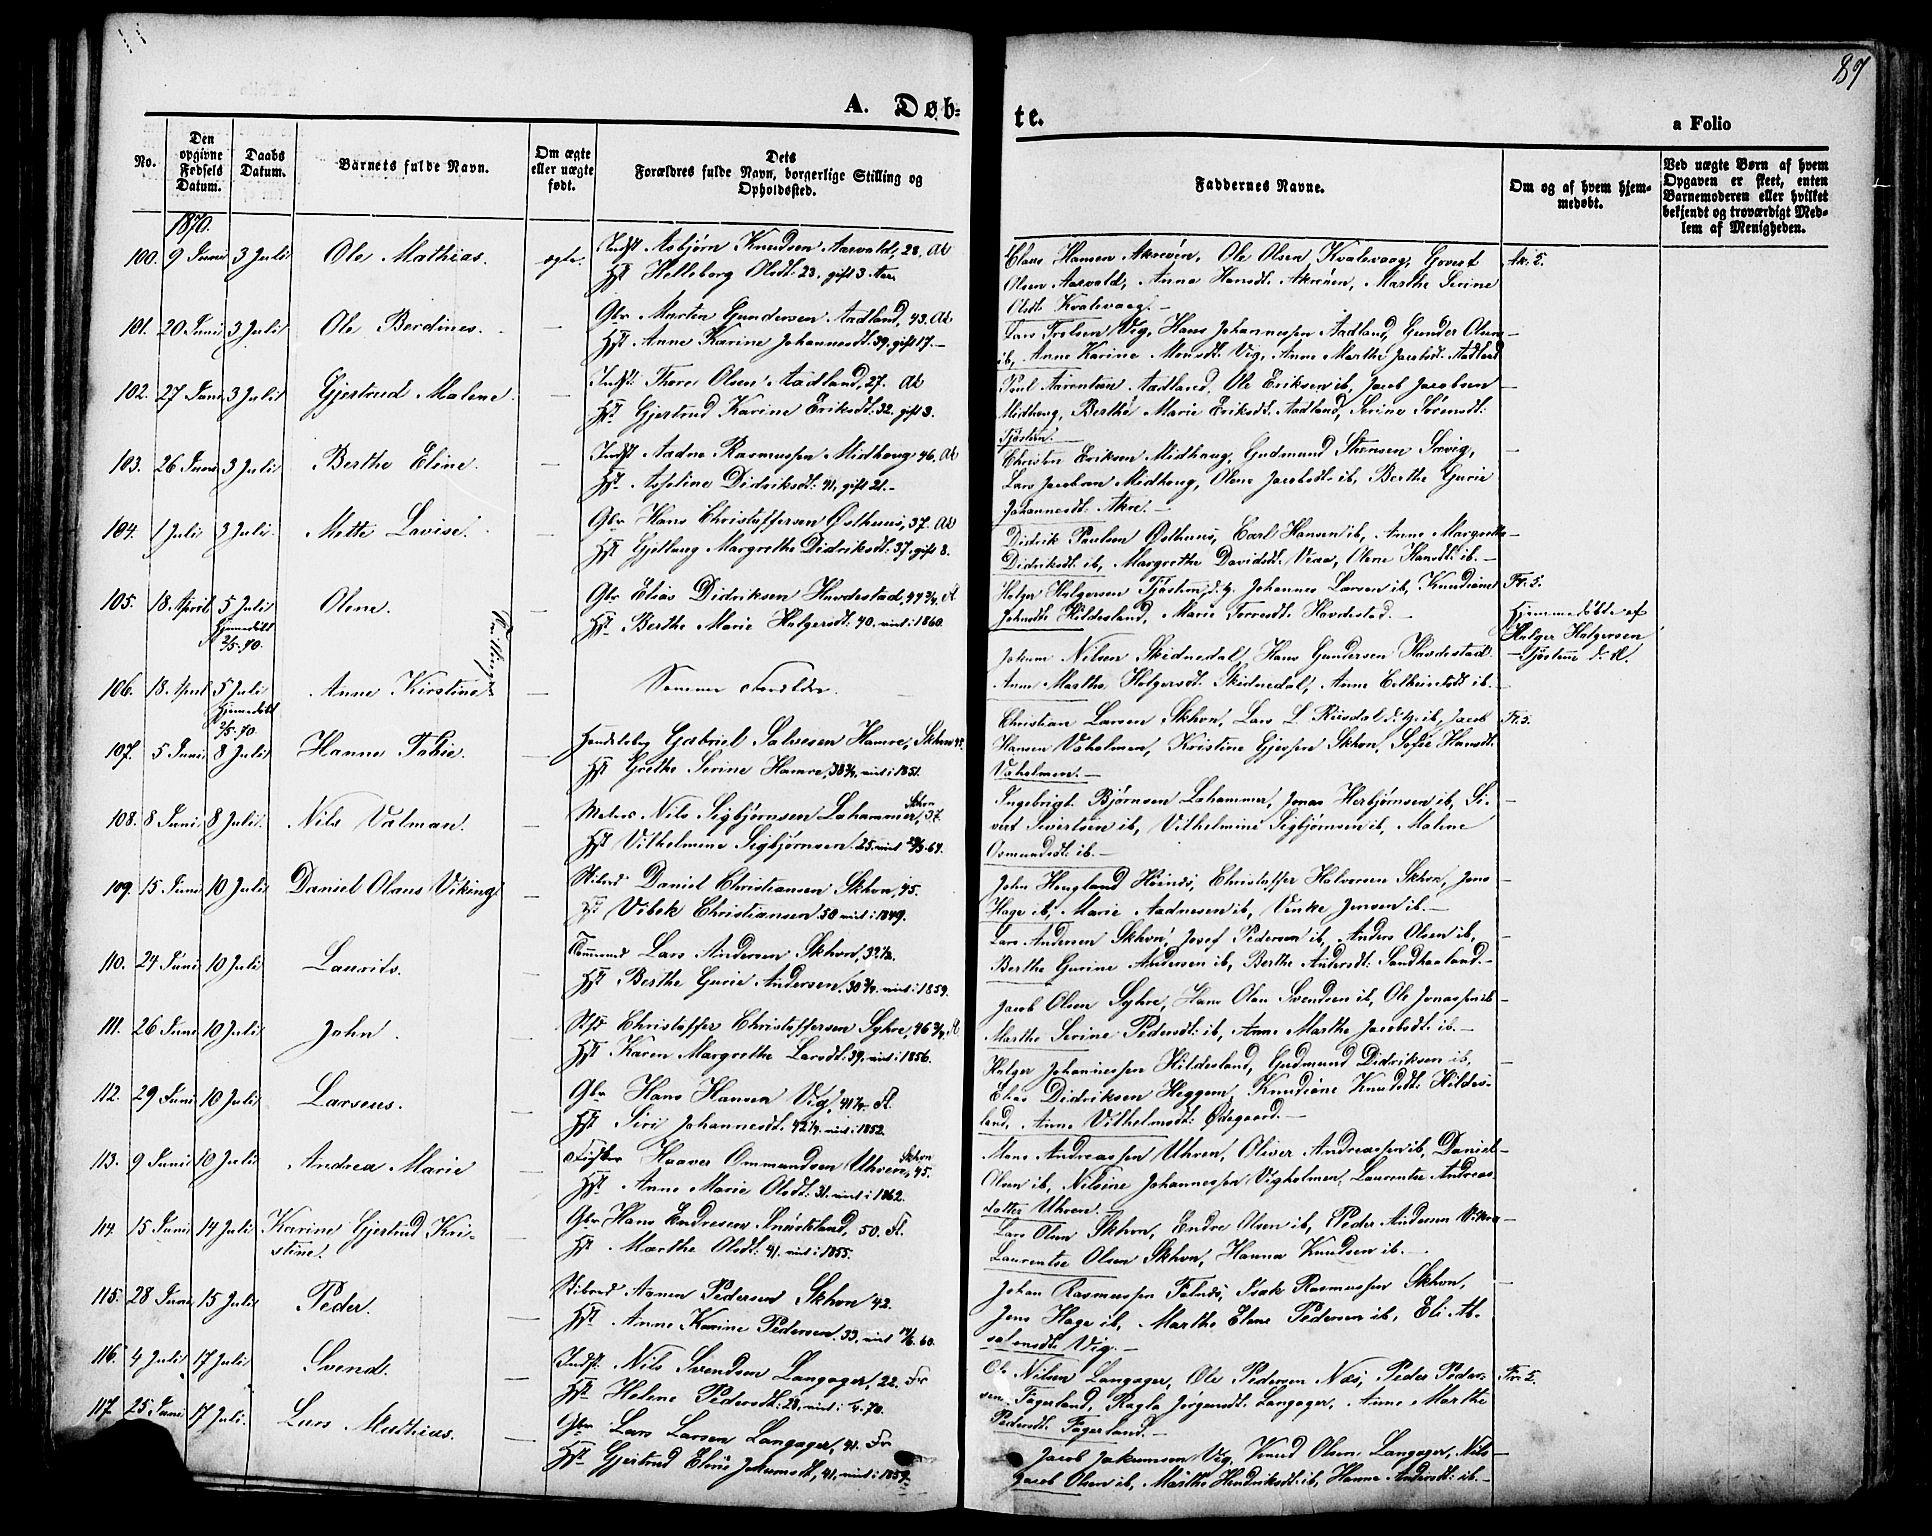 87
A. Døb-
te.
a Folio
No.
Den opgivne Fødsels Datum.
Daabs Datum.
Barnets fulde Navn.
Om ægte eller uægte født.
Dets Forældres fulde Navn, borgerlige Stilling og Opholdssted.
Faddernes Navne.
Om og af hvem hjemmedøbt.
Ved uægte Børn af hvem Opgaven er skeet, enten Barnemoderen eller hvilket bekjendt og troværdigt Medlem af Menigheden.
1870.
100. 9 Juni 3 Juli Ole Mathias. ægte. Indst Asbjørn Knudsen Aasvald, 28. Ak
Hst Helleborg Olsdt: 23. gift 3. Aar
Claus Hansen Akreøen, Ole Olsen Kvalevaag, Govert
Olsen Aasvald, Anna Hansdt: Akreøen, Marthe Serine
Olsdt: Kvalevaag.—
101. 20 Juni 3 Juli Ole Berdines. — Gbr Martin Gundersen Aadland, 43. Ak
Hst Anne Karine Johannesdt: 39, gift 17.—
Lars Trolsen Vig, Hans Johannessen Aadland, Gunder Olsen
ib, Anne Karine Monsdt: Vig, Anne Marthe Jacobsdt: Aadland
102. 27 Juni 3 Juli Gjertrud Malene. — Indst: Thore Olsen Aadland, 27. Ak
Hst Gjertrud Karine Eriksdt: 32. gift 3.
Poul Aarentsen Aadland, Ole Eriksen ib, Jacob Jacobsen
Midhoug, Berthe Marie Eriksdt. Aadland, Serine Sørensdt:
Tjøsten.
103. 26 Juni 3 Juli Berthe Eline. — Indst Aadne Rasmussen Midhoug 46. Ak
Hst Asseline Didriksdt: 41, gift 21.—
Christen Eriksen Midhaug, Gudmund Stensen Sævig,
Lars Jacobsen Midhoug, Olene Jacobsdt: ib, Berthe Gurie
Johannesdt: Akre.—
104. 1 Juli 3 Juli. Mette Lovise. — Gbr Hans Christoffersen Østhuus, 37. Ak
Hst Gjetlaug Margrethe Didriksdt: 37, gift 8.
Didrik Paulsen Østhuus, Carl Hansen ib, Anne Margrethe
Didriksdt: ib, Margrethe Davidsdt. Viraa, Olene Hansdt: ib.—
105. 18. April 5 Juli Olene. — Gbr Elias Didriksen Havdestad, 44 3/4. Fl
Hjemmedøbt 2/5. 70.
Tvillinger
Hst Berthe Marie Holgersdt: 40. viet: 1860.
Holger Holgersen Tjøsten, Johannes Larsen ib, Knudiane
Johnsdtr Hildesland, Marie Torresdt: Havdestad.—
Hjemmedøbte af
Holger Holgersen
Tjøstene
106. 18. April 5 Juli Anne Kirstine — Samme Forældre.
Hjemmedøbt 2/5. 70.
Johan Nilsen Skidnedal, Hans Gundersen Havdestad.
Anne Marthe Holgersdt: Skidnedal, Anne ib.—
107. 5 Juni 8 Juli Hanne Tobie. — Handelsbg Gabriel Salvesen Hamre, Skhvn
Hst Grethe Serine Hamre, 38 3/4. viet: 1851.
Christian Larsen Skhvn, Lars L. Riisdal ib, Jacob
Hansen Vaholmen, Kristine Gjessen Skhvn, Sofie Hansdt:
Vaholmen.—
108. 8 Juni 8 Juli. Nils Valman. — Nils Sigbjørnsen Lahammer, Skhvn 37.
Hst Vilhelmine Sigbjørnsen 25. viet
Ingebrigt Bjørnsen Lahammer, Jonas Herbjørnsen ib, Si-
vert Sivertsen ib, Vilhelmine Sigbjørnsen ib, Malene
Osmundsdt: ib.—
109. 15 Juni 10 Juli Daniel Olaus Viking — Daniel Christiansen Skhvn, 45.
Hst Vibek Christiansen 50 viet: 1849.
John Hougland Høinæs, Christoffer Halvorsen Skhvn, Jens
Hage ib, Marie Aadnesen ib, Vinke Jensen ib.—
110. 24 Juni 10 Juli Laurits. — Tømmermd Lars Andersen Skhvn, 32 1/2.
Hst Berthe Gurie Andersen 30 3/4. viet: 1859.
Lars Andersen Skhvn, Josef Pedersen ib, Anders Olsen ib,
Berthe Gurine Andersen ib, Berthe Andersdt: Sandhaaland.—
111. 26 Juni 10 Juli John. — Christoffer Christoffersen Syhre, 46 3/4. Fl
Hst Karen Margrethe Larsdt: 39. viet: 1856.
Jacob Olsen Syhre, Hans Olan Svendsen ib, Ole Jonassen ib
Marthe Serine Pedersdt: ib, Anne Marthe Jacobsdt: ib.—
112. 29 Juni 10 Juli Larseus. — Gbr Hans Hansen Vig, 41 1/4. Fl.
Hst Siri Johannesdt: 42 1/4. viet: 1852.
Holger Johannessen Hildesland, Gudmund Didriksen ib,
Elias Didriksen Heggem, Knudiane Knudsdt: Hildes-
land, Anne Vilhelmsdt: Ødegaard.—
113. 9 Juni 10 Juli Andrea Marie — Haaver Ommundsen Uhven, Skhvn 45.
Hst Anne Marie Olsdt: 31. viet: 1862.
Mons Andreassen Uhven, Oliver Andreassen ib, Daniel
Olsen ib, Nilsine Johannessen Vigholmen, Laurentse Andreas-
datter Uhven.—
114. 15 Juni 14 Juli Karine Gjertrud Kri-
stine.
— Gbr Hans Endresen Snørteland, 50. Fl.
Hst Marthe Olsdt: 41. viet: 1855.
Lars Olsen Skhvn, Endre Olsen ib, Peder Andersen Vikre
Laurentse Olsen Skhvn, Hanna Knudsen ib.—
115. 28 Juni 15 Juli Peder. — Aanen Pedersen Skhvn 42.
Hst Anne Karine Pedersen 33, viet
Johan Rasmussen Falnæs, Isak Rasmussen Skhvn,
Jens Hage ib, Marthe Elene Pedersen ib, Eli Ab-
salonsdt: Vig.—
116. 4 Juli 17 Juli Svend. — Indst: Nils Svendsen Langager, 22. Fr
Hst Helene Pedersdt: 23, viet:
Ole Nilsen Langager, Ole Pedersen Næs, Peder Peder-
sen Fagerland, Ragla Jørgensdt: Langager, Anne Marthe
Pedersdt: Fagerland.—
Fr. 5.
117. 25 Juni 17 Juli. Lars Mathias. — Gbr Lars Larsen Langager, 41. Fr
Hst Gjertrud Eline Jakumsdt, 41, viet: 1857.
Jacob Jakumsen Vig, Knud Olsen Langager, Nils
Jacob Olsen ib, Marthe Hendriksdt: ib, Hanne Andersdt: ib.—